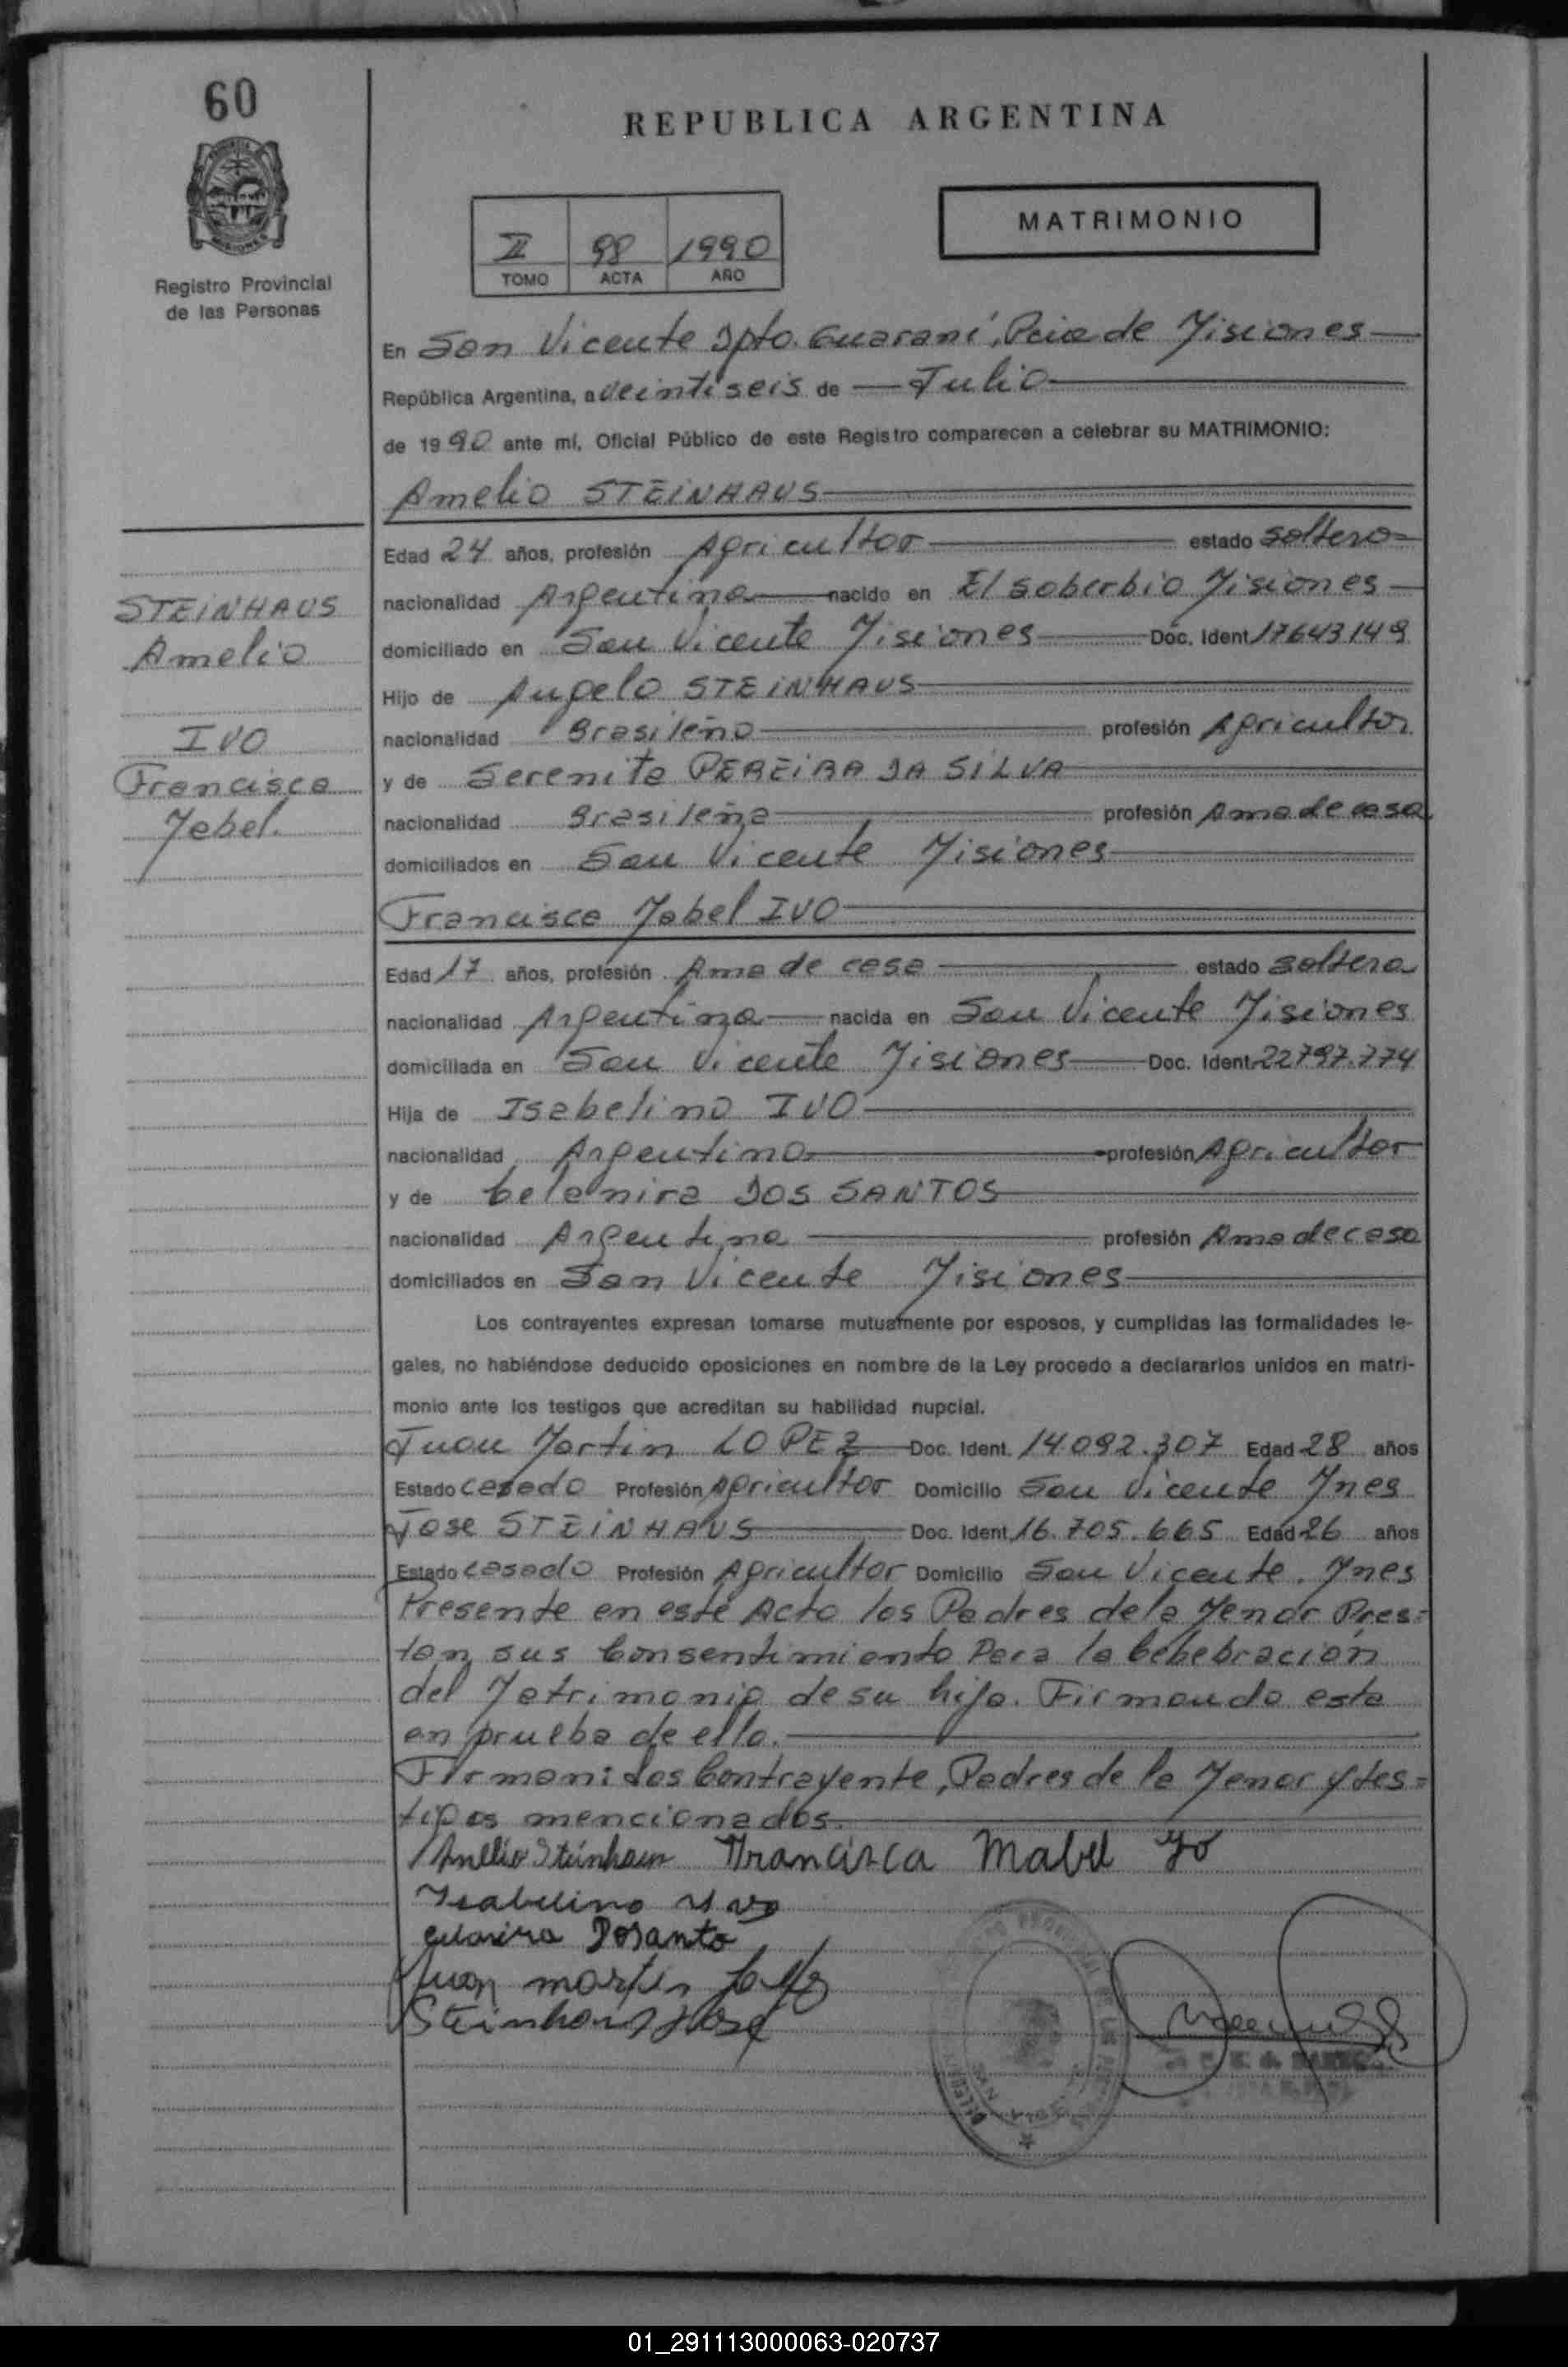 60
REPUBLICA ARGENTINA
MATRIMONIO
II 98 1990
TOMO ACTA AÑO
Registro Provincial
de las Personas
En San Vicente Dpto. Guaraní, Pcia de Misiones
República Argentina, a veintiseis de Julio
de 1990 ante mí, Oficial Público de este Registro comparecen a celebrar su MATRIMONIO:
Amelio STEINHAUS
Edad 24 años, profesión Agricultor estado soltero
STEINHAUS
Amelio
IVO
Francisca
Mabel.
nacionalidad Argentina nacido en El soberbio Misiones
domiciliado en San Vicente Misiones Doc. Ident 17643149
Hijo de Angelo STEINHAUS
nacionalidad Brasileño profesión Agricultor
y de Serenita PEREIRA DA SILVA
nacionalidad Brasileña profesión Ama de casa
domiciliados en San Vicente Misiones
Francisca Mabel IVO
Edad 17 años, profesión Ama de casa estado soltera
nacionalidad Argentina nacida en San Vicente Misiones
domiciliada en San Vicente Misiones Doc. Ident 22797.774
Hija de Isabelino IVO
nacionalidad Argentino profesión Agricultor
y de Celanira DOS SANTOS
nacionalidad Argentina profesión Ama de casa
domiciliados en San Vicente Misiones
Los contrayentes expresan tomarse mutuamente por esposos, y cumplidas las formalidades le-
gales, no habiéndose deducido oposiciones en nombre de la Ley procedo a declararlos unidos en matri-
monio ante los testigos que acreditan su habilidad nupcial.
Juan Martin LOPEZ Doc. Ident. 14.092.307 Edad 28 años
Estado casado Profesión Agricultor Domicilio San Vicente Mnes
Jose STEINHAUS Doc. Ident 16.705.665 Edad 26 años
Estado casado Profesión Agricultor Domicilio San Vicente. Mnes
Presente en este Acto los Padres de la Menor Pres=
tan sus Consentimiento Para la Celebración
del Matrimonio de su hija. Firmando esta
en prueba de ello.
Firman: los Contrayente, Padres de la Menor y tes=
tigos mencionados.
Amelio Steinhaus Francisca Mabel Ivo
Isabelino Ivo
Dosanto
Juan martin
Steinhaus Jose
01_291113000063-020737